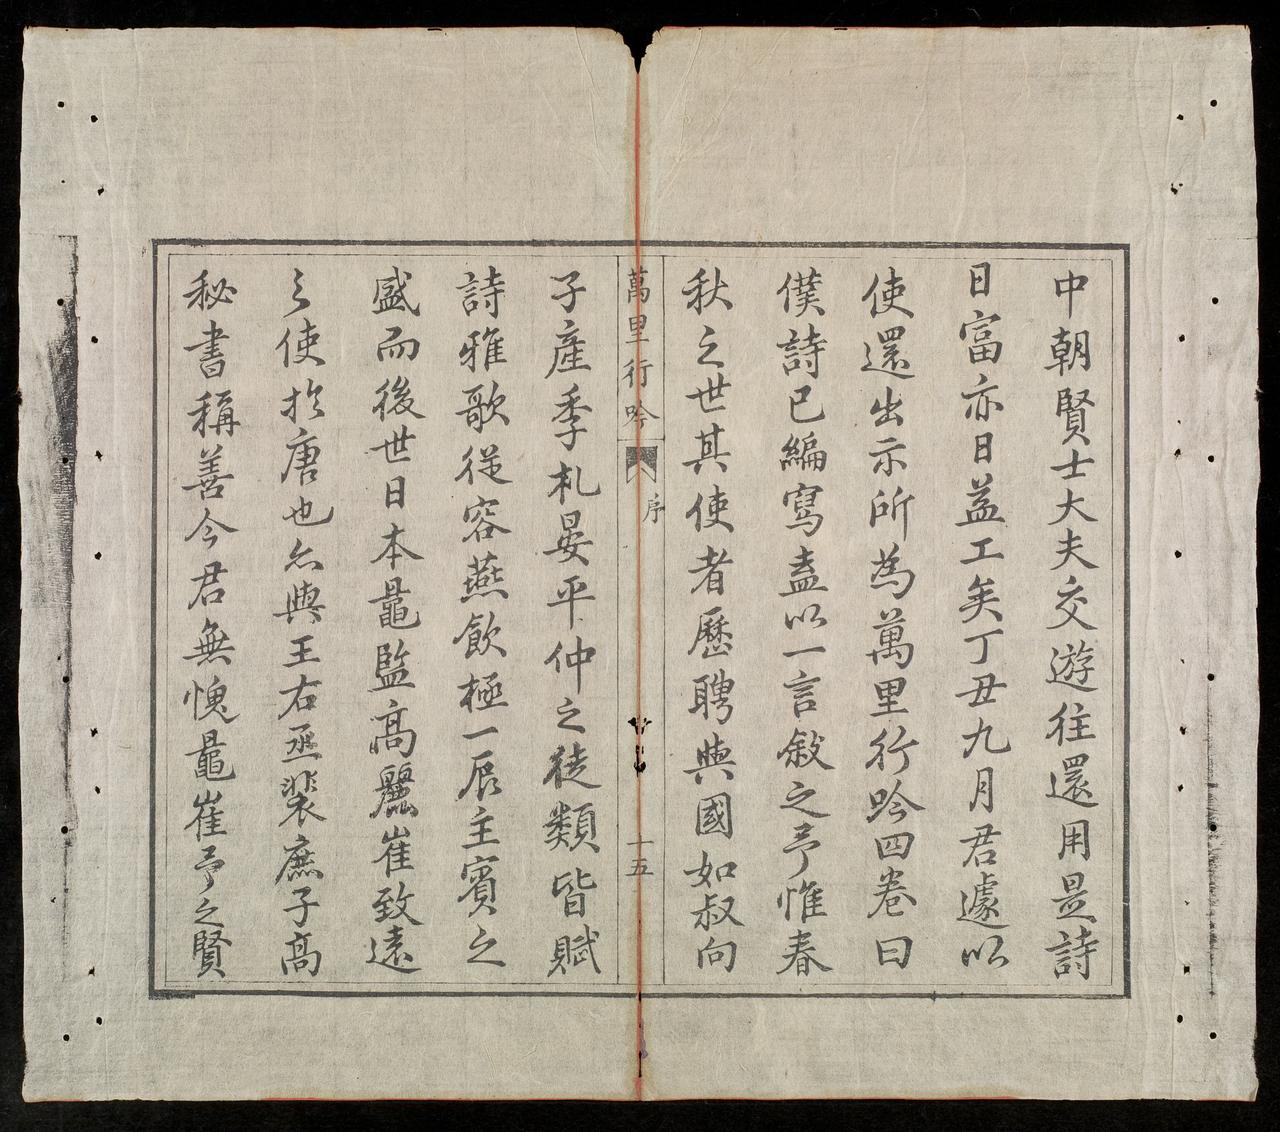 中朝賢士大夫交遊往還用是詩
日富亦日益工矣丁丑九月君遽以
使還出示所為萬里行吟四卷曰
僕詩已編寫盍以一言敍之予惟春
秋之世其使者歷聘與國如叔向
萬里行吟 序 十五
子產季札晏平仲之徒類皆賦
詩雅歌從容燕飲極一辰主賓之
盛而後世日本鼂監高麗崔致遠
之使於唐也亦與王右丞裴庶子高
秘書稱善今君無愧鼂崔予之賢